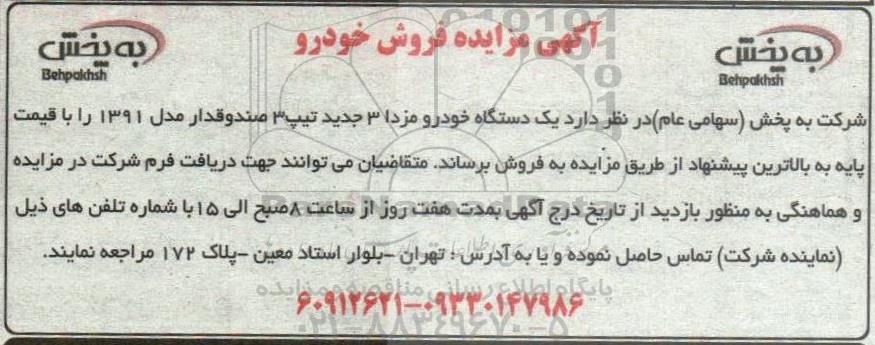 آگهی مزایده فروش خودرو
به پخش
Behpakhsh
به پخش
Behpakhsh
شرکت به پخش (سهامی عام)در نظر دارد یک دستگاه خودرو مزدا ۳ جدید تیپ۳ صندوقدار مدل ۱۳۹۱ را با قیمت
پایه به بالاترین پیشنهاد از طریق مزایده به فروش برساند. متقاضیان می توانند جهت دریافت فرم شرکت در مزایده
و هماهنگی به منظور بازدید از تاریخ درج آگهی بمدت هفت روز از ساعت ۸صبح الی ۱۵با شماره تلفن های ذیل
(نماینده شرکت) تماس حاصل نموده و یا به آدرس : تهران -بلوار استاد معین -پلاک ۱۷۲ مراجعه نمایند.
پایگاه اطلاع رسانی مناقصه و مزایده
۶۰۹۱۲۶۲۱-۰۹۳۳۰۱۴۷۹۸۶
۰۲۱-۸۸۳۴۹۶۷۰-۵